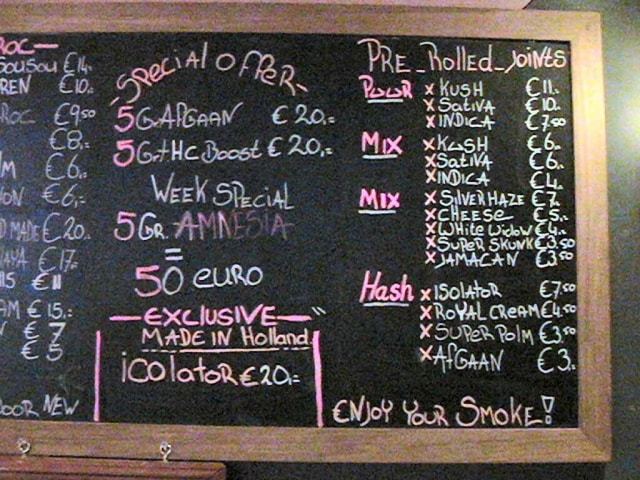 ROC
SOUSOU €14.
REN €10.
ROC €950
€8,-
M €6.-
ON €6,-
D MADE €20.
€17.
€11
AM €15,-
€7
€5
DOOR NEW
-SPECIAL OFFER-
5 Gr. AFGAAN €20,=
5 Gr. THC Boost €20,=
WEEK SPECIAL
5 GR. AMNESIA
=
50 EURO
-EXCLUSIVE-
MADE IN Holland
iCOlatoR €20,=
PRE_Rolled_Joints
PUUR x KUSH €11.
x Sativa €10.
x INDICA €7.50
MIX x KUSH €6.
x Sativa €6.
x INDICA €4.
MIX x SILVER HAZE €7.
x CHEESE €5.
x WHITE WIDOW €4.
x SUPER SKUNK €3.50
x JAMACAN €3.50
Hash x ISOLATOR €7.50
x ROYAL CREAM €4.50
x SUPER POLM €3.50
x AFGAAN €3.
ENJOY YOUR SMOKE!